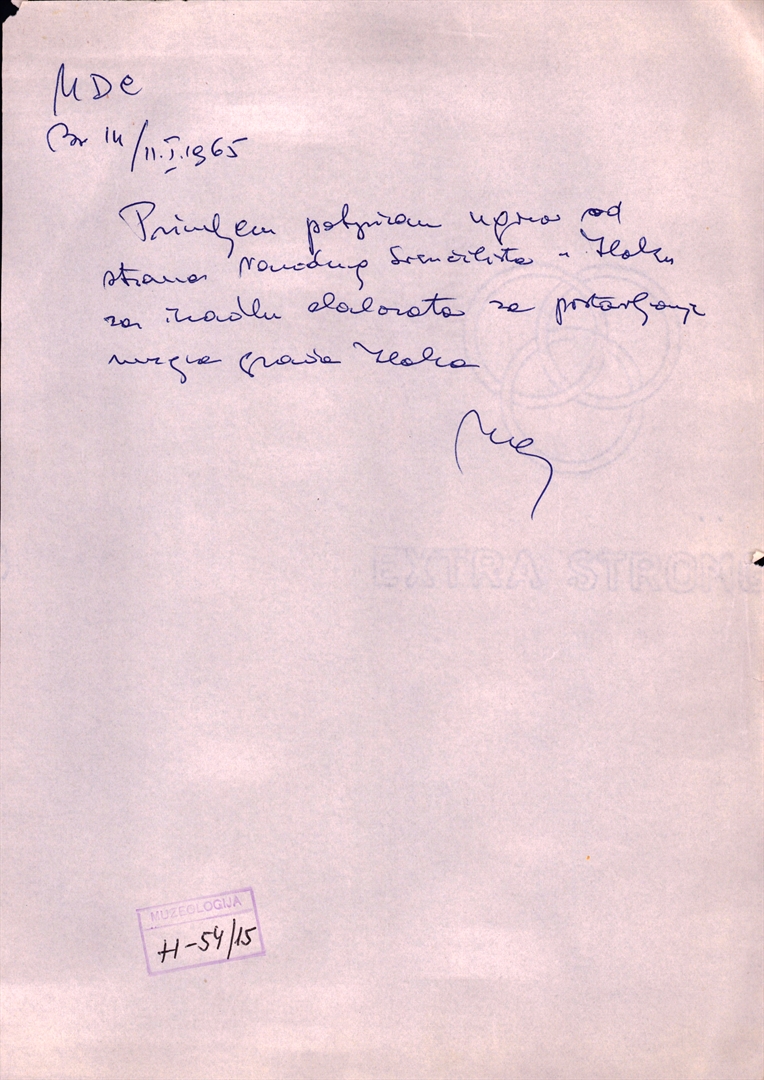 MDC
Br 14/11.I.1965
Primljem potpisan ugovor od
strane Narodnog Sveučilišta u Iloku
za izradbu elaborata za postavljanje
muzeja grada Iloka
EXTRA STRONG
MUZEOLOGIJA
H-54/15